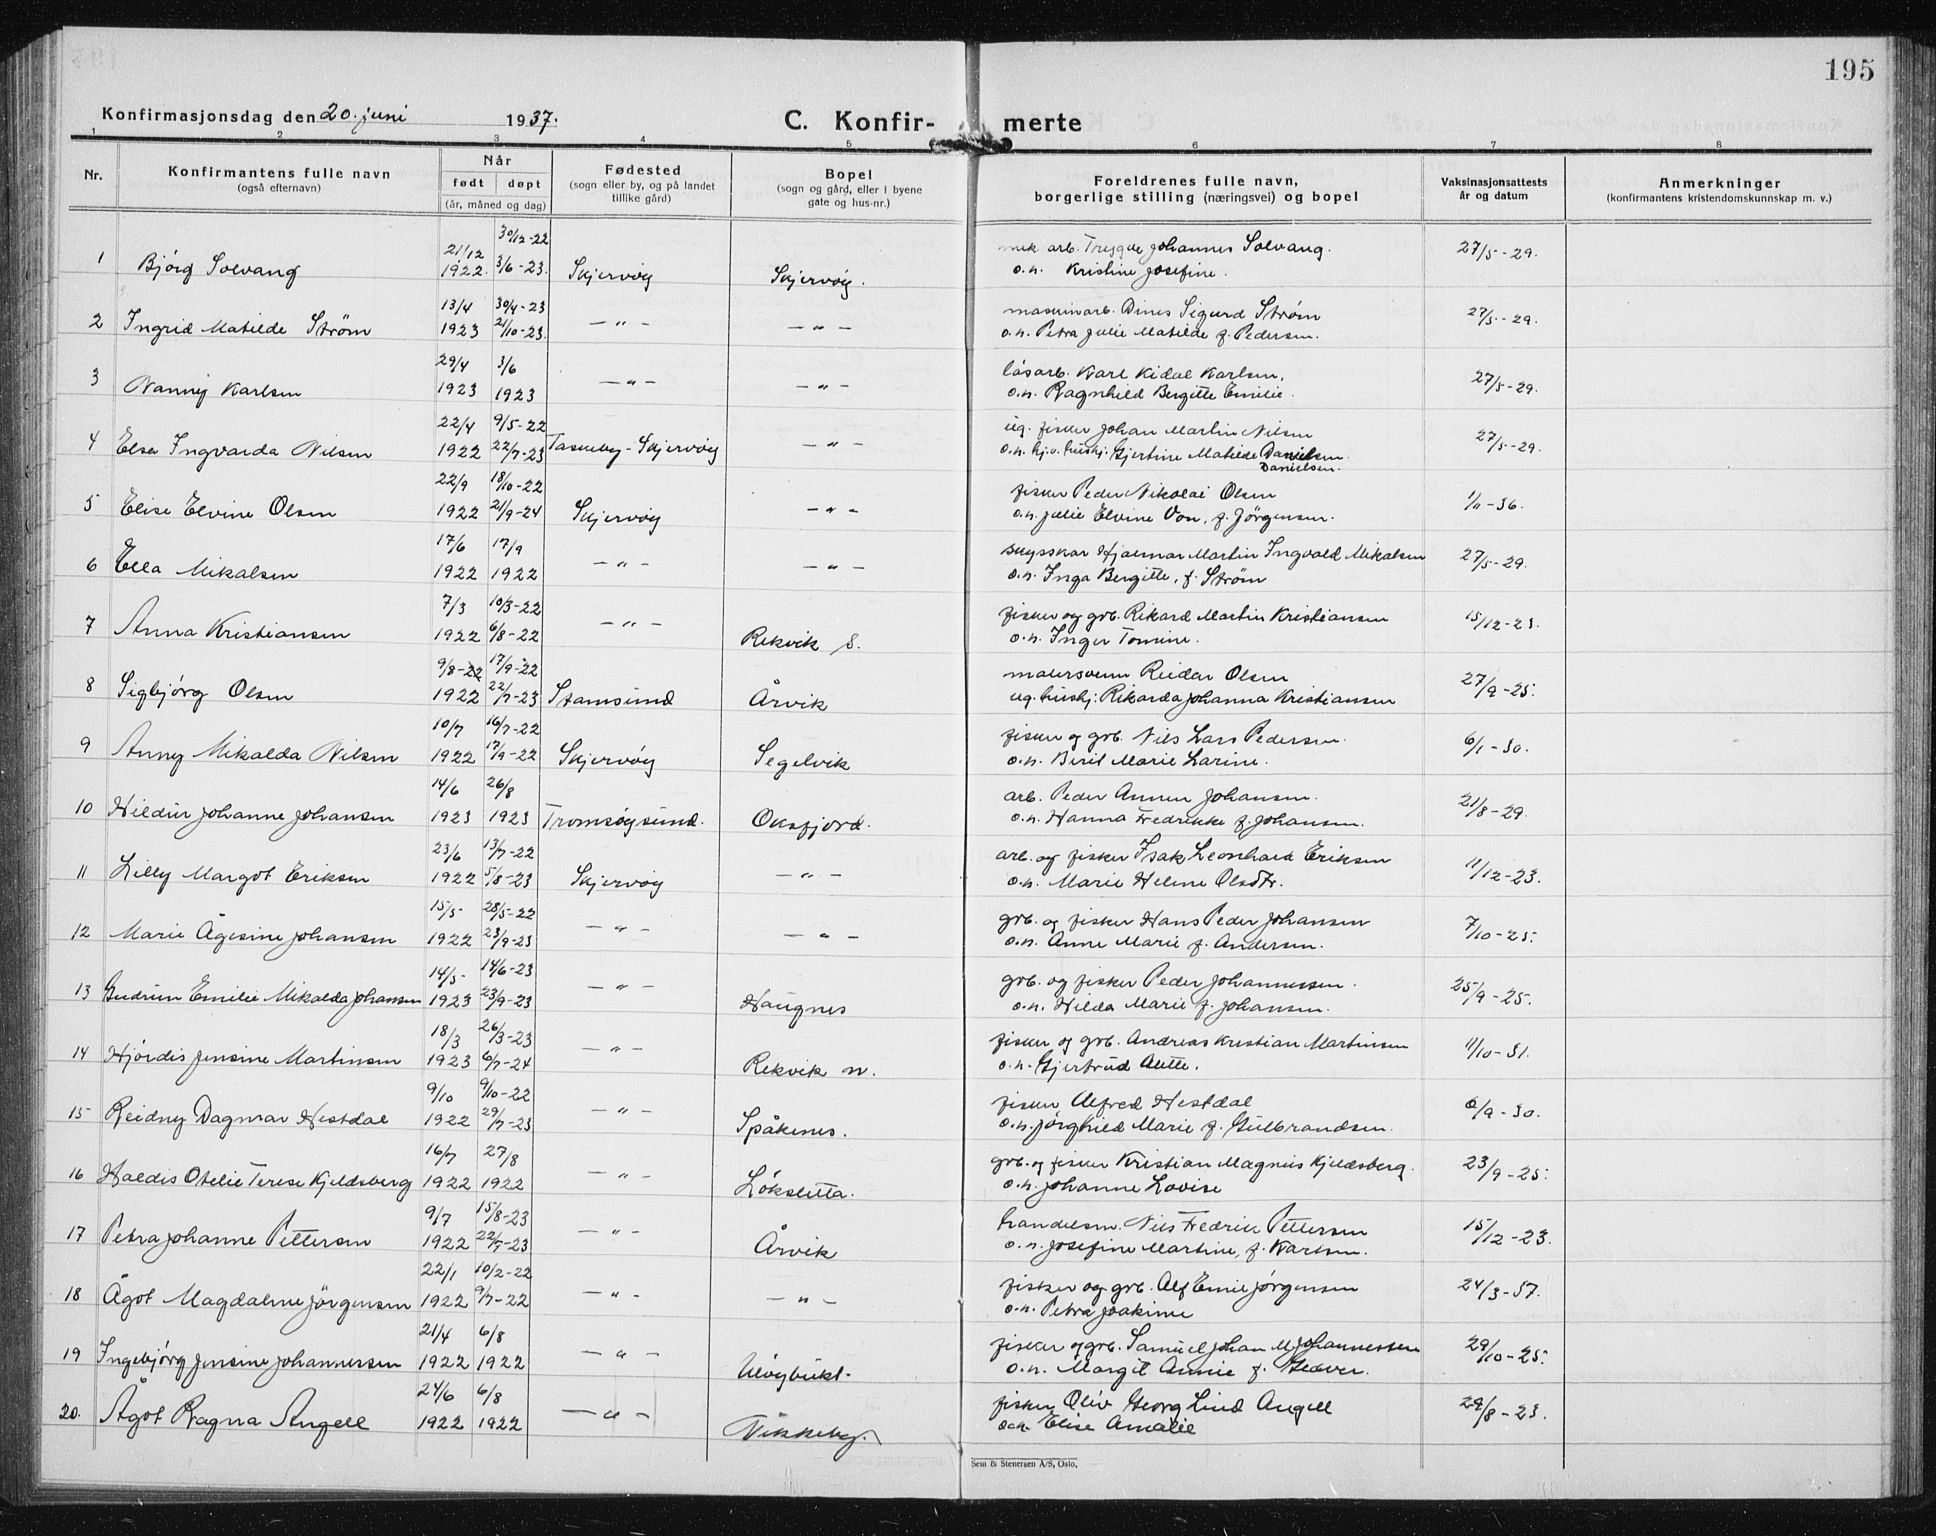 195
Konfirmasjonsdag den 20. juni 1937.
C. Konfir- merte
1 2 3 4 5 6 7 8
Nr.
Konfirmantens fulle navn
(også efternavn)
Når
født døpt
(år, måned og dag)
Fødested
(sogn eller by, og på landet
tillike gård)
Bopel
(sogn og gård, eller i byene
gate og hus-nr.)
Foreldrenes fulle navn,
borgerlige stilling (næringsvei) og bopel
Vaksinasjonsattests
år og datum
Anmerkninger
(konfirmantens kristendomskunnskap m. v.)
21/12 30/12-22 mek. arb. Trygve Johannes Solvang. 27/5-29.
1 Bjórg Solvang 1922. 3/6-23. Skjervöy Skjervöy. o.h. Kristine Josefine.
13/4 30/4-23 maskinarb. Dines Sigurd Strøm 27/5-29.
2 Ingrid Matilde Strøm 1923 21/10-23. —"— —"— o.h. Petra Julie Matilde f. Pedersen.
29/4 3/6 låsarb. Karl Kidal Karlsen, 27/5-29.
3 Nanny Karlsen 1923 1923 —"— —"— o.h. Ragnhild Bergitte Emilie.
22/4 9/5-22 ug. fisker Johan Martin Nilsen 27/5-29.
4 Elsa Ingvarda Nilsen 1922 22/7-23 Taskeby-Skjervöy —"— o.h. hj.v. hushj. Gjertine Matilde Danielsen.
Danielsen.
22/9 18/10-22 fisker Peder Nikolai Olsen 1/11-36.
5 Elise Elvine Olsen 1922 21/9-24 Skjervöy —"— o.h. Julie Elvine Von, f. Jörgensen.
17/6 17/9 skysskar Hjalmar Martin Ingvald Mikalsen 27/5-29.
6 Ella Mikalsen 1922 1922 —"— —"— o.h. Inga Bergitte, f. Strøm
7/3 10/3-22 fisker og grb. Rikard Martin Kristiansen 15/12-23.
7 Anna Kristiansen 1922 6/8-22 —"— Rekvik S. o.h. Inger Tomine.
9/8-22 17/9-22 malersvenn Reidar Olsen 27/9-25.
8 Sigbjórg Olsen 1922 22/7-23 Stamsund Årvik ug. hushj: Rikarda Johanna Kristiansen
10/7 16/7-22 fisker og grb. Nils Lars Pedersen. 6/1-30.
9 Anny Mikalda Nilsen 1922 17/9-22 Skjervöy Segelvik o.h. Beril Marie Larine.
14/6 26/8 arb. Peder Annen Johansen. 21/8-29.
10 Hildur Johanne Johansen 1923 1923 Tromsöysund. Oksfjord. o.h. Hanna Fredrikke f. Johansen.
23/6 13/7-22 arb. og fisker Isak Leonhard Eriksen 11/12-23.
11 Lilly Margot Eriksen 1922 5/8-23 Skjervöy —"— o.h. Marie Helene Olsdtr.
15/5- 28/5-22 grb. og fisker Hans Peder Johansen 7/10-25.
12 Marie Ågesine Johansen 1922 23/9-23 —"— —"— o.h. Anne Marie f. Andersen.
14/5- 14/6-23 grb. og fisker Peder Johannessen. 25/9-25.
13 Gudrun Emilie Mikalda Johansen 1923 23/9-23 —"— Haugnes o.h. Hilda Marie f. Johansen.
18/3 26/3-23 fisker og grb. Andreas Kristian Martinsen 11/10-31.
14 Hjórdis Jensine Martinsen 1923 6/7-24 —"— Rekvik n. o.h. Gjertrud Alette.
9/10 9/10-22 fisker Alfred Hestdal 6/9-30.
15 Reidny Dagmar Hestdal 1922 29/7-23 —"— Spåkenes. o.h. Jórghild Marie f. Gulbrandsen.
16/7 27/8 grb. og fisker Kristian Magnus Kjeldsberg. 23/9-25.
16 Haldis Otelie Terese Kjeldsberg 1922 1922 —"— Lökslitta. o.h. Johanne Lovise
9/7 15/8-23 handelsm. Nils Fredrik Pettersen 15/12-23.
17 Petra Johanne Pettersen 1922 22/7-23 —"— Årvik o.h. Josefine Martine, f. Karlsen.
22/1 10/2-22 fisker og grb. Alf Emil Jórgensen 24/3-37.
18 Ågot Magdalene Jörgensen 1922 9/7-22 —"— —"— o.h. Petra Joakime
21/4 6/8 fisker og grb. Samuel Johan M. Johannessen 29/10-25.
19 Ingebjórg Jensine Johannessen 1922 1922 —"— Ulöybukt. o.h. Margit Annie f. Gever.
24/6 6/8 fisker Oliv Georg Lind Angell 29/8-23.
20. Ågot Ragna Angell 1922 1922 —"— Nikkeby. o.h. Elise Amalie
Sem & Stenersen A/S, Oslo.